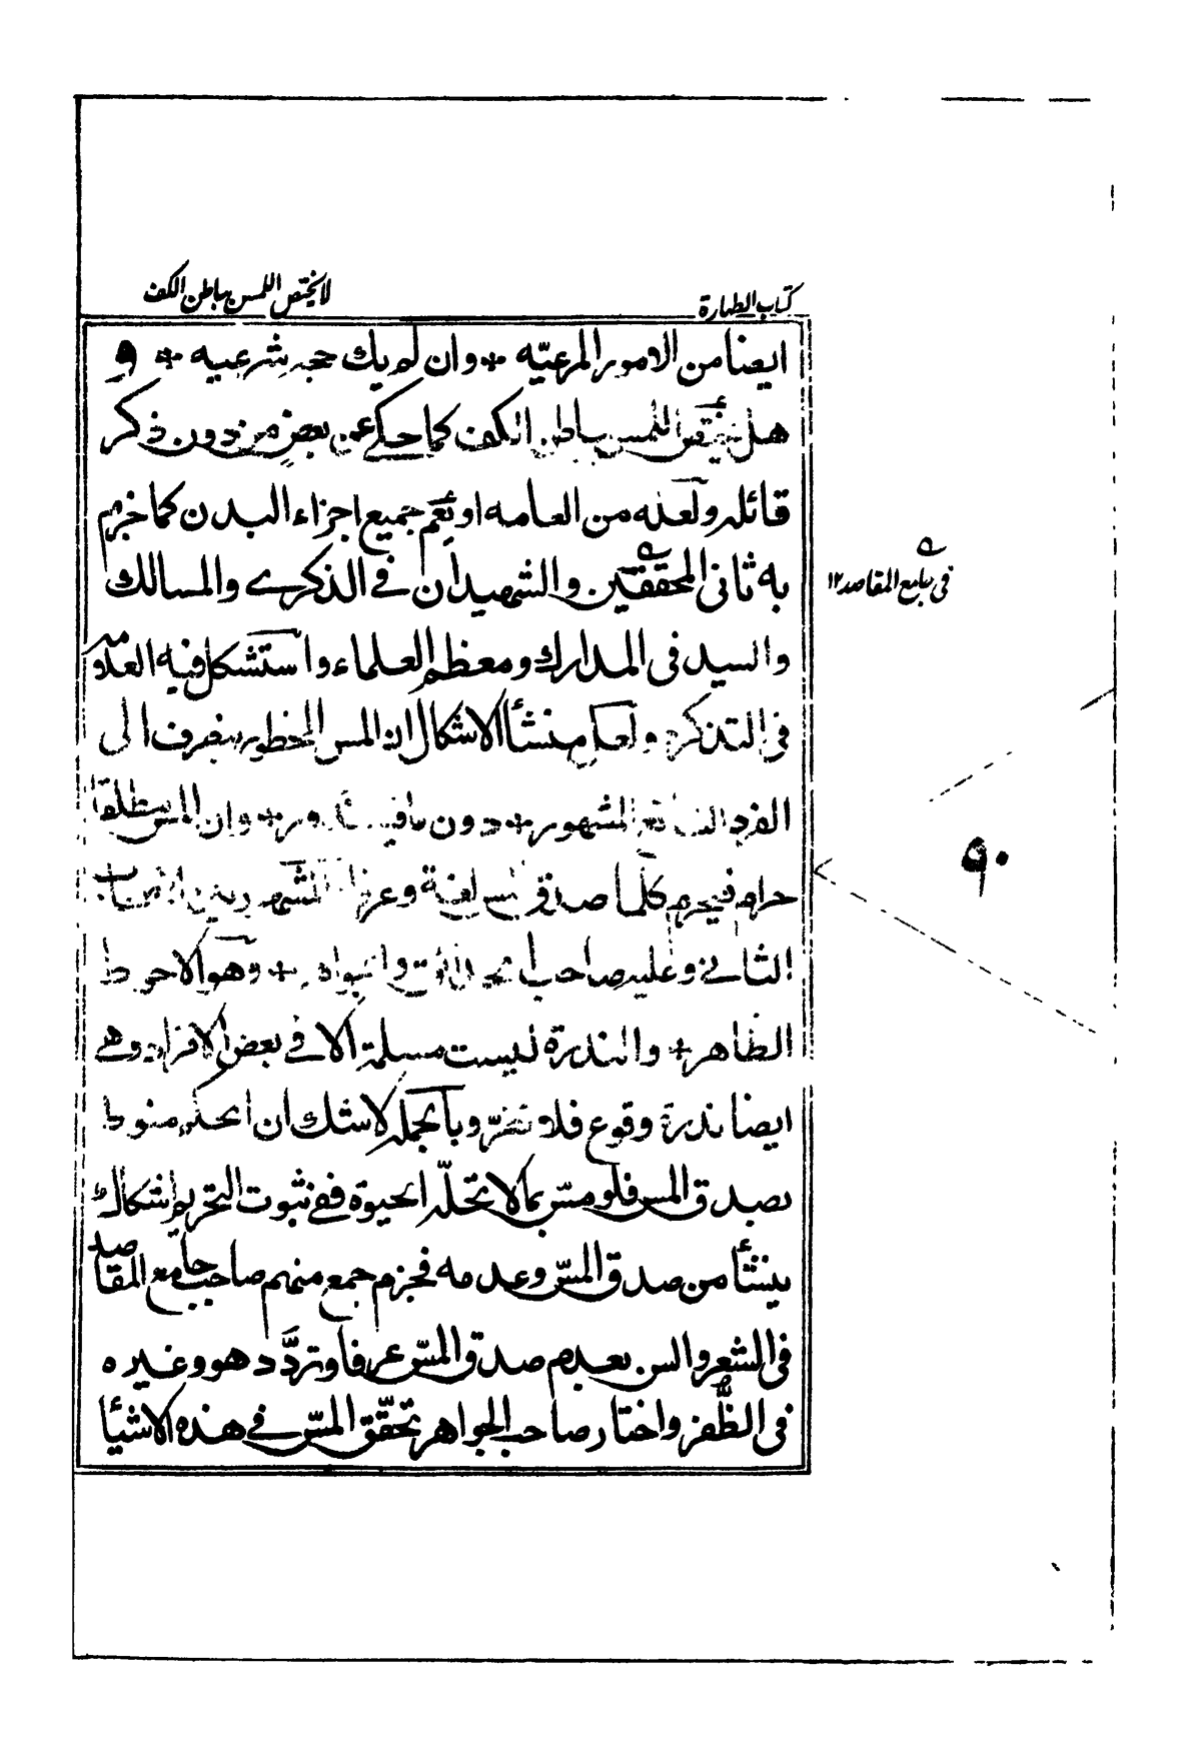 كتاب الطهارة
لا يختص اللمس بباطن الكف
ايضا من الامور المرعيّه + وان لم يك حجه شرعيه + و
هل يختص اللمس بباطن الكف كما حكى عن بعض من دون ذكر
قائله ولعله من العامه او يعم جميع اجزاء البدن كما جزم
به ثانى المحققين والشهيدان فى الذكرى والمسالك
فى جامع المقاصد ١٢
والسيد فى المدارك ومعظم العلماء واستشكل فيه العلامه
فى التذكره ولعل منشأ الاشكال ان المس المحظور ينصرف الى
الفرد المشهور + دون ما فيه + وان المس مطلقا
حرام فيحرم كلما صدق لغة وعرفا
٩٠
الثانى وعليه صاحب + وهو الاحوط
الظاهر + والندرة ليست مسلمة الا فى بعض الافراد وهى
ايضا ندرة وقوع فلا تضرّ وبالجمله لا شك ان الحكم منوط
بصدق المس فلو مسّ بما لا تحلّه الحيوة ففى ثبوت التحريم اشكال
ينشأ من صدق المسّ وعدمه فجزم جمع منهم صاحب جامع المقاصد
فى الشعر والسن بعدم صدق المسّ عرفا وتردّد هو وغيره
فى الظّفر واختار صاحب الجواهر تحقّق المسّ فى هذه الاشيأ